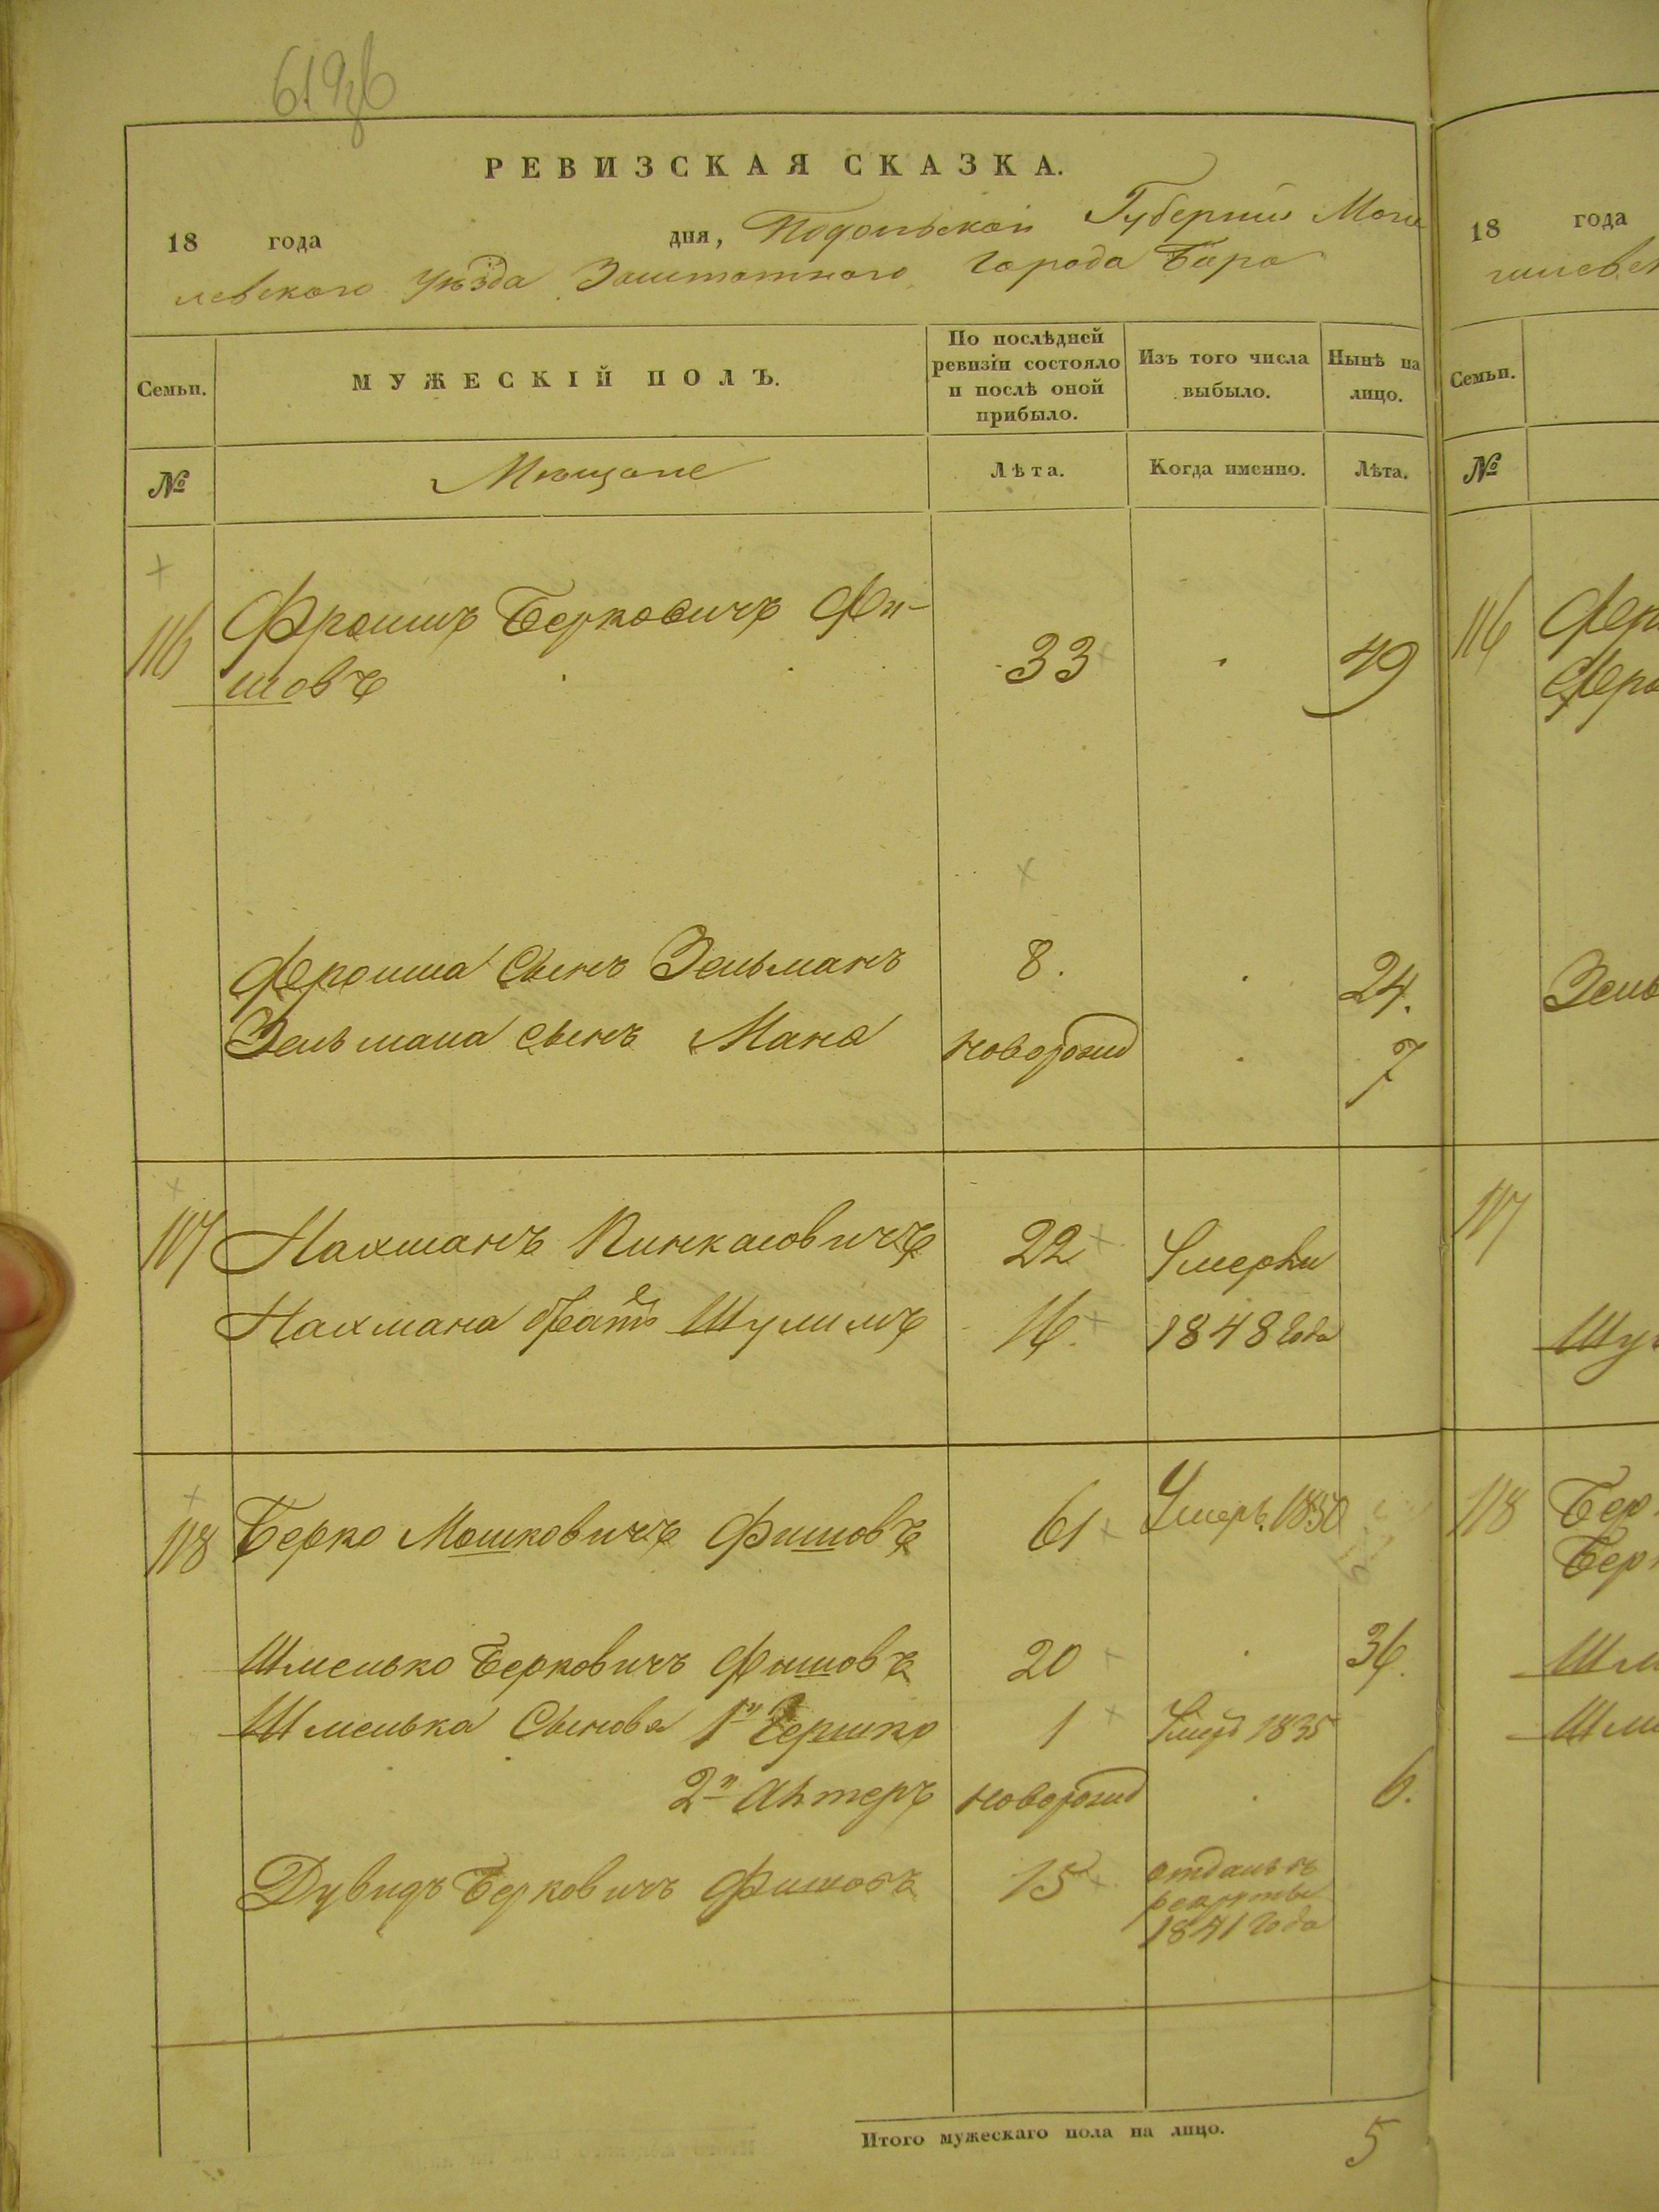 РЕВИЗСКАЯ СКАЗКА.
18 года дня, Подольской Губерніи Моги
левского Уѣзда Заштатного Города Бара
Семьи.
МУЖЕСКІЙ ПОЛЪ.
По послѣдней ревизіи состояло и послѣ оной прибыло.
Изъ того числа выбыло.
Нынѣ на лицо.
№
Мѣщане
Лѣта.
Когда именно.
Лѣта.
116 Фроимъ Берковичъ Фи-
шовъ 33 49
Фроима Сынъ Зельманъ 8. 24.
Зельмана сынъ Мана новорожд 7
117 Нахманъ Пинкасовичъ 22 Умерли
Нахмана братъ Шулимъ 16. 1848 Года
118 Берко Мошковичъ Фишовъ 61 Умеръ 1850
Шмелько Берковичъ Фишовъ 20 36.
Шмелька Сынова 1й Гершко 1 Умер 1835
2й новорожд 6.
Дувидъ Берковичъ Фишовъ 15 отданъ въ
рекруты
1841 Года
Итого мужескаго пола на лицо. 5
18 года
Семьи.
№
116
117
118